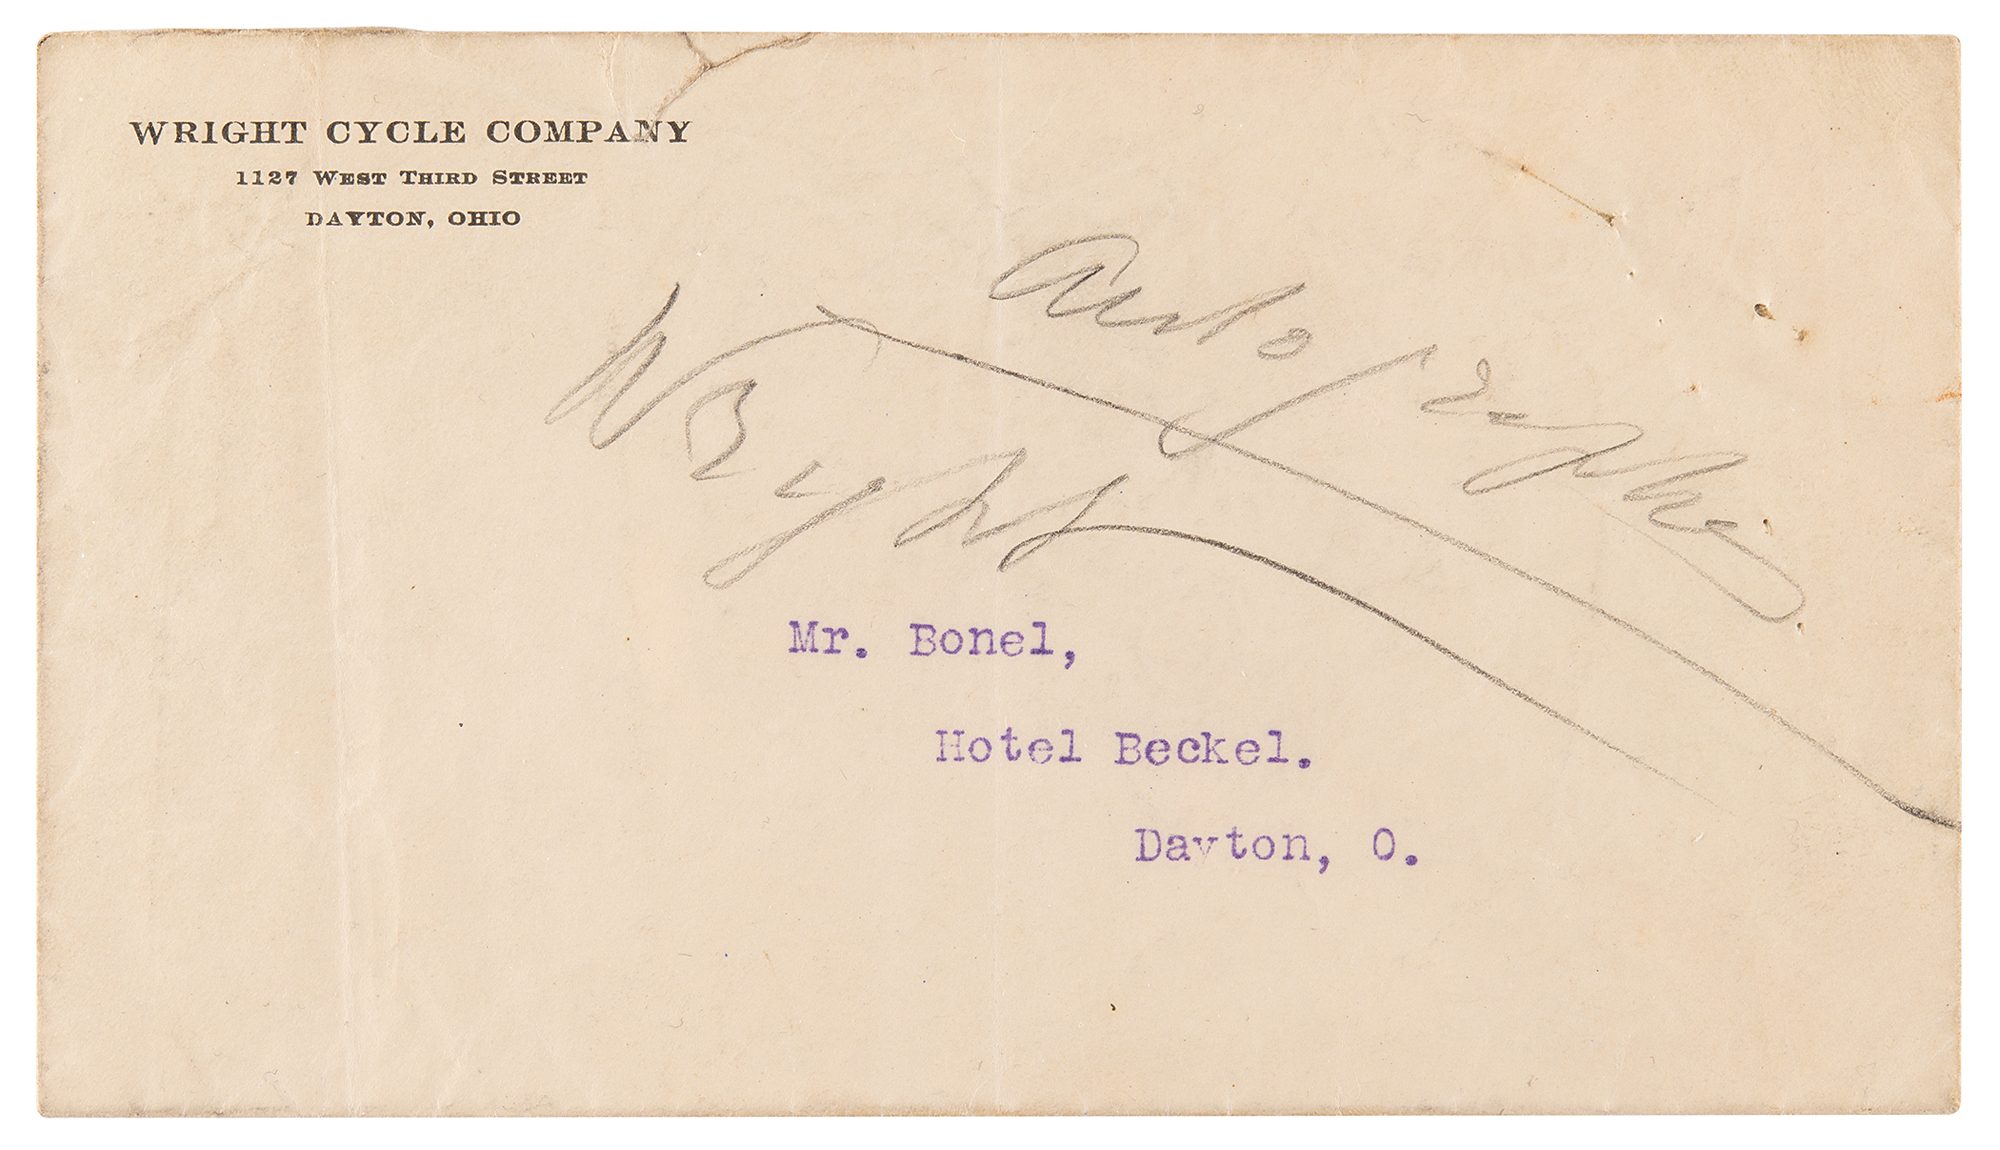 WRIGHT CYCLE COMPANY
1127 WEST THIRD STREET
DAYTON, OHIO
Wright
Autographs
Mr. Bonel,
Hotel Beckel.
Dayton, O.